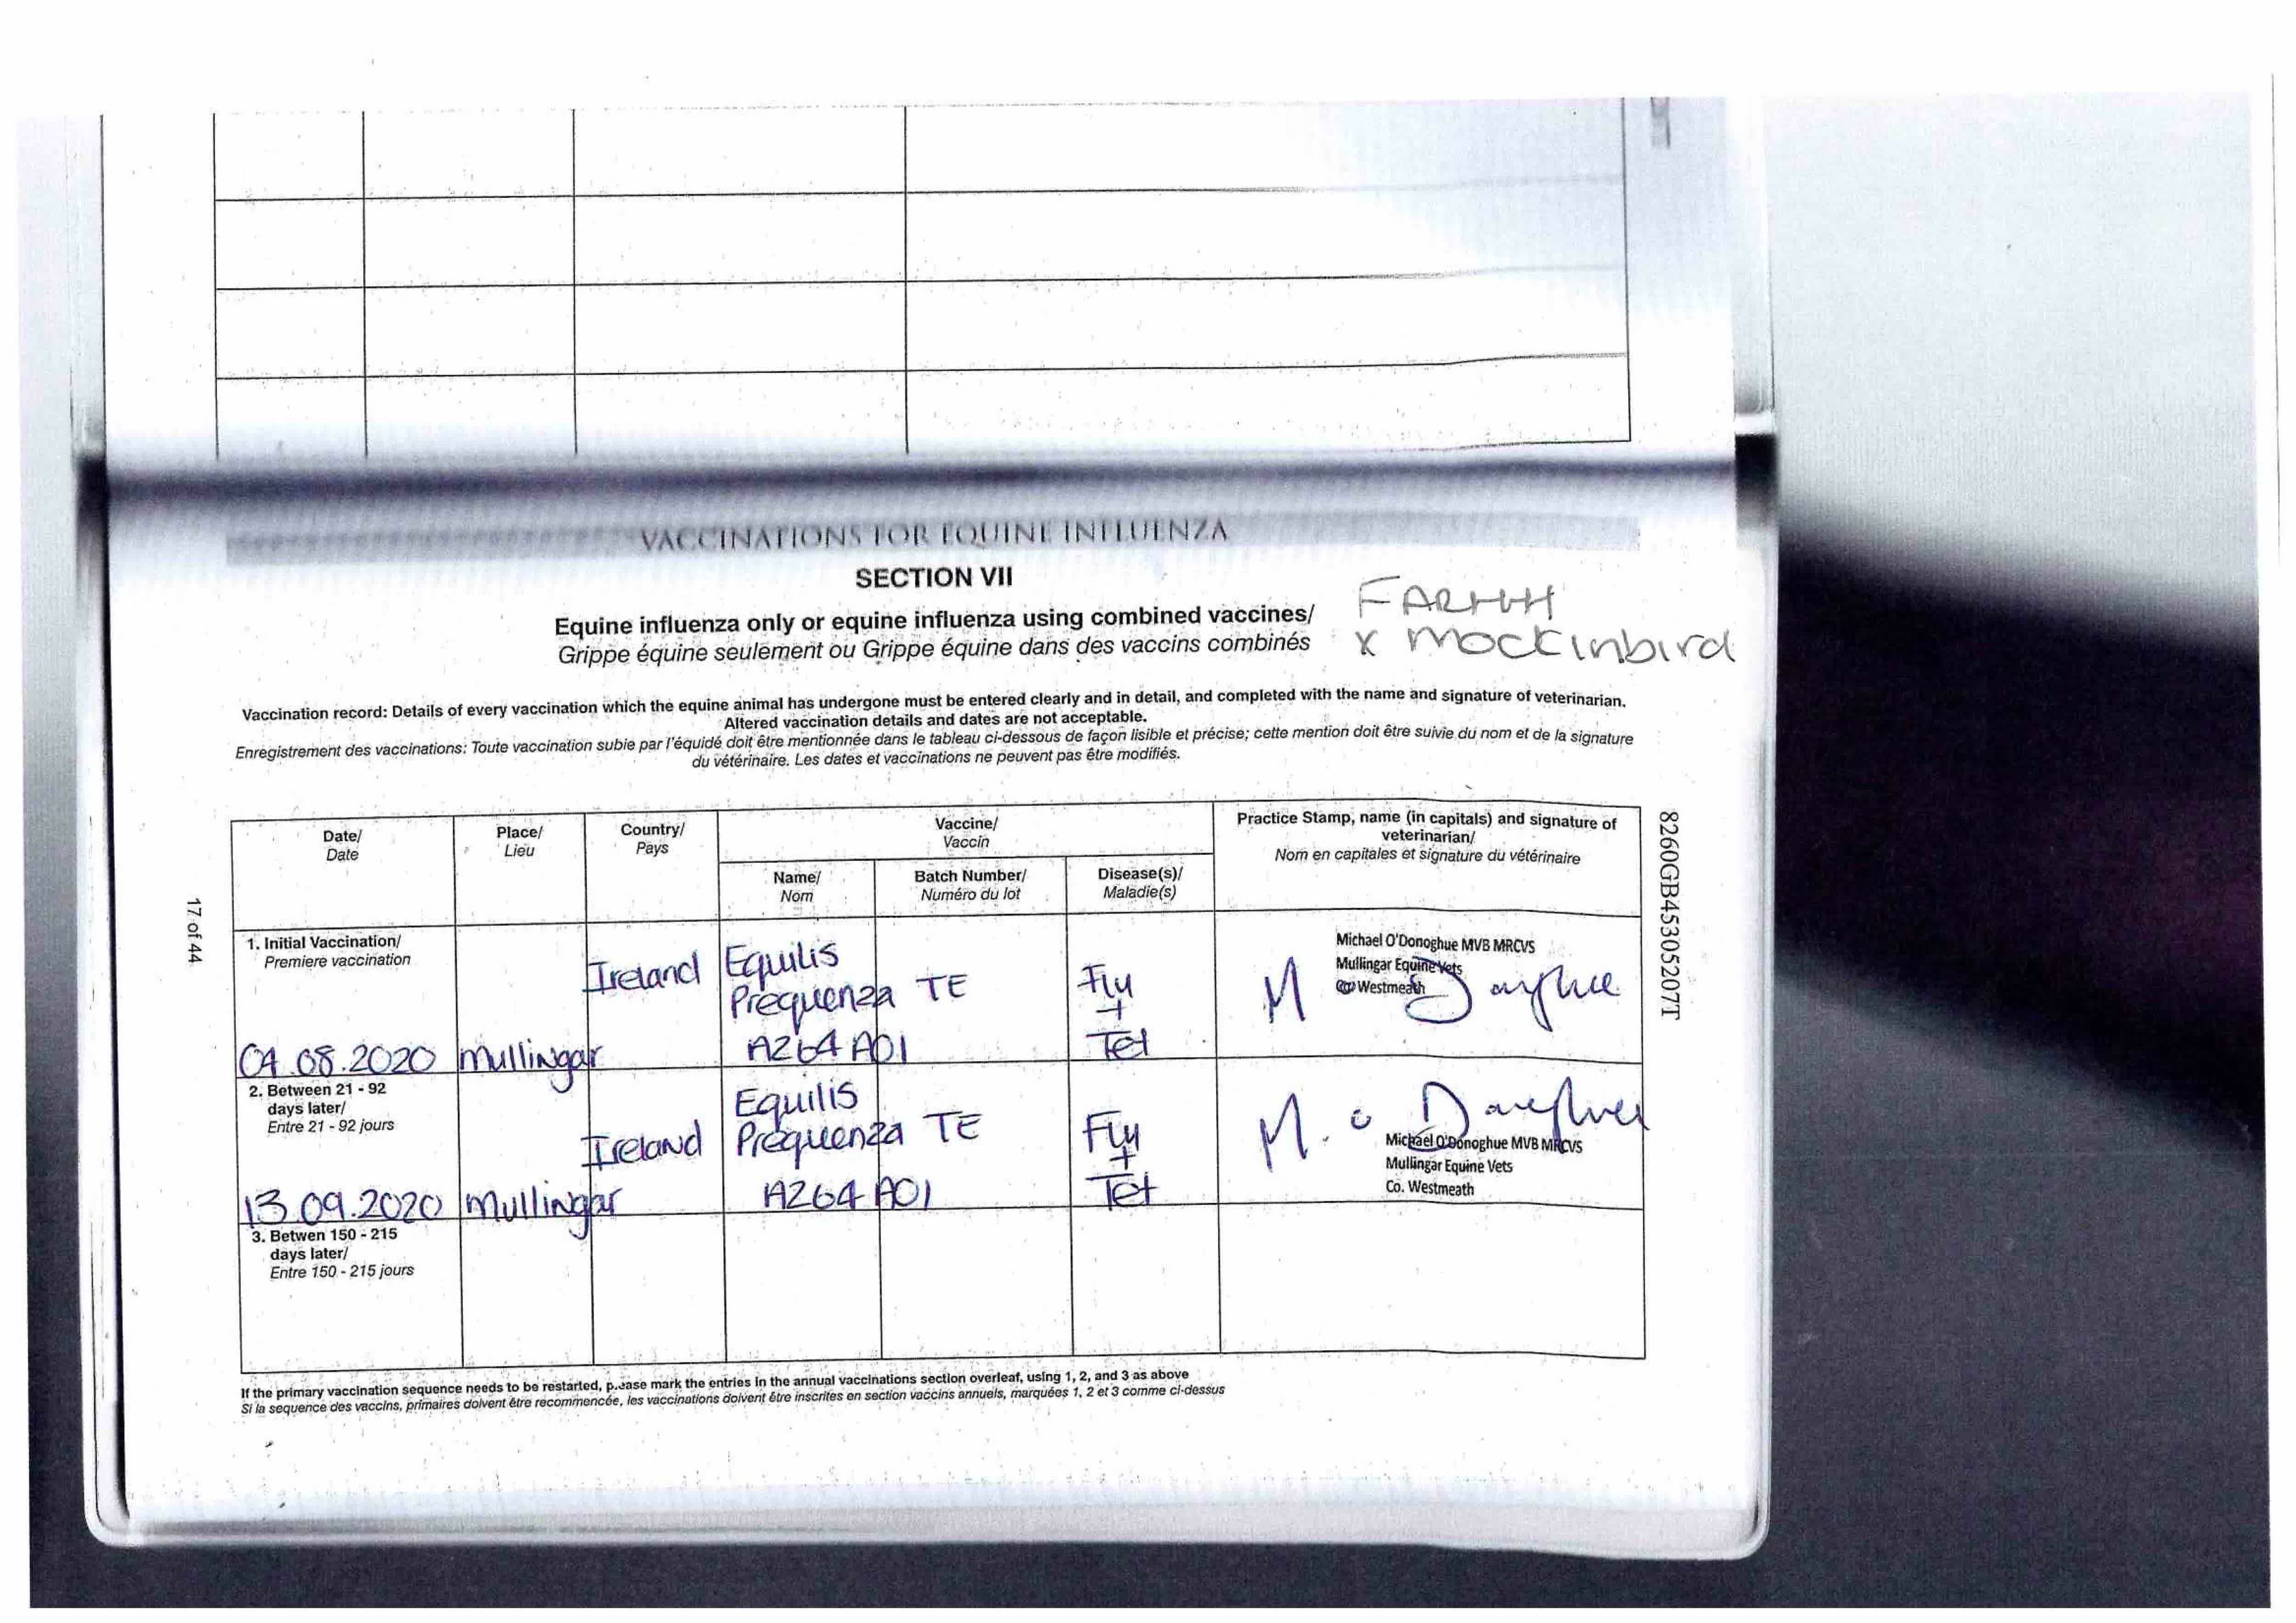 VACCINATIONS FOR EQUINE INFLUENZA
SECTION VII
Equine influenza only or equine influenza using combined vaccines/
Grippe équine seulement ou Grippe équine dans des vaccins combinés
x mockinbird
Vaccination record: Details of every vaccination which the equine animal has undergone must be entered clearly and in detail, and completed with the name and signature of veterinarian.
Altered vaccination details and dates are not acceptable.
Enregistrement des vaccinations: Toute vaccination subie par l'équidé doit être mentionnée dans le tableau ci-dessous de façon lisible et précise; cette mention doit être suivie du nom et de la signature
du vétérinaire. Les dates et vaccinations ne peuvent pas être modifiés.
Date/
Date
Place/
Lieu
Country/
Pays
Vaccine/
Vaccin
Name/
Nom
Batch Number/
Numéro du lot
Disease(s)/
Maladie(s)
Practice Stamp, name (in capitals) and signature of
veterinarian/
Nom en capitales et signature du vétérinaire
1. Initial Vaccination/
Premiere vaccination
04.08.2020
Mullingar
Ireland
Equilis
Prequenza TE
A264A01
Flu
+
Tet
Michael O'Donoghue MVB MRCVS
Mullingar Equine Vets
Co. Westmeath
2. Between 21 - 92
days later/
Entre 21 - 92 jours
13.09.2020
Mullingar
Ireland
Equilis
Prequenza TE
A264A01
Flu
+
Tet
Michael O'Donoghue MVB MRCVS
Mullingar Equine Vets
Co. Westmeath
3. Betwen 150 - 215
days later/
Entre 150 - 215 jours
If the primary vaccination sequence needs to be restarted, please mark the entries in the annual vaccinations section overleaf, using 1, 2, and 3 as above
Si la sequence des vaccins, primaires doivent être recommencée, les vaccinations doivent être inscrites en section vaccins annuels, marquées 1, 2 et 3 comme ci-dessus
17 of 44
8260GB45305207T